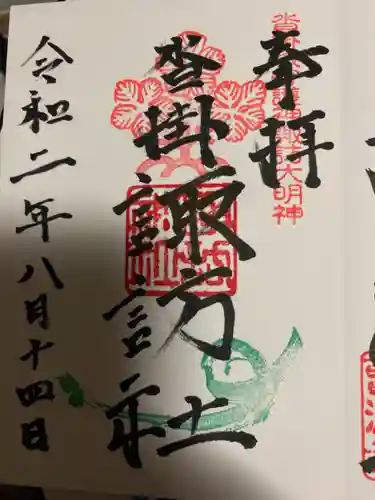 奉拝
護神諏訪大明神
沓掛諏訪社
令和二年八月十四日